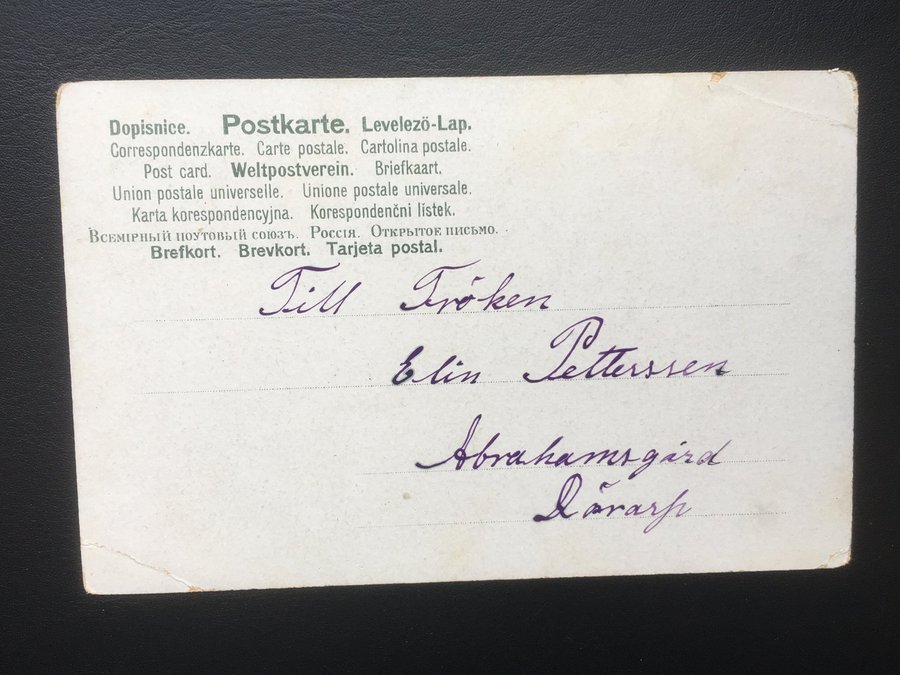 Dopisnice. Postkarte. Levelezö-Lap.
Correspondenzkarte. Carte postale. Cartolina postale.
Post card. Weltpostverein. Briefkaart.
Union postale universelle. Unione postale universale.
Karta korespondencyjna. Korespondenčni lístek.
Всемірный поутовый союзъ. Россія. Открытое письмо.
Brefkort. Brevkort. Tarjeta postal.
Till Fröken
Elin Petterssen
Abrahamsgård